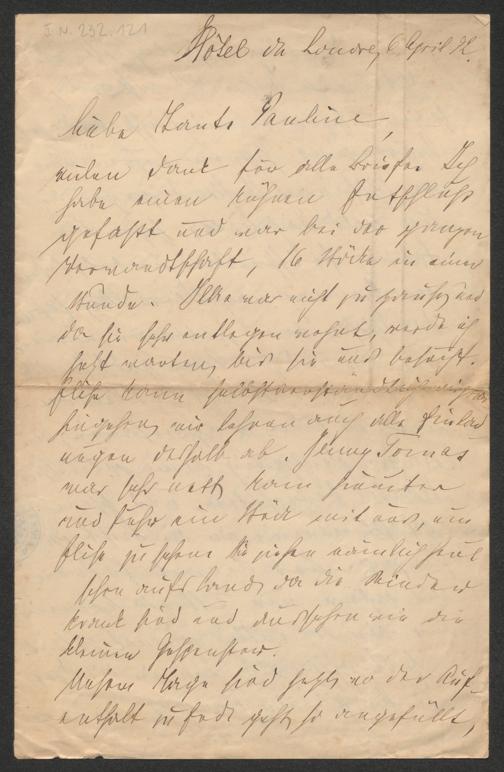 I.N. 232.121
Hôtel de Londres, 6 April 92.
Liebe Tante Pauline,
vielen Dank für alle Briefe. Ich
habe einen kühnen Entschluß
gefaßt und war bei der ganzen
Verwandtschaft, 16 Stöcke in einer
Stunde. Ilka war nicht zu Hause und
da sie sehr entlegen wohnt, werde ich
jetzt warten, bis sie uns besucht.
Elise kann selbstverständlich
hingehen, wir lehren auch alle Einlad
ungen deshalb ab. Jenny Tomas
war sehr nett kam herunter
und fuhr ein Stück mit uns, um
Elise zu sehen. Sie ziehen nämlich
schon aufs Land, da die Kinder
krank sind und aussehen wie die
kleinen Gespenster.
Unsere Tage sind jetzt, wo der Auf-
enthalt zu Ende geht, so angefüllt,